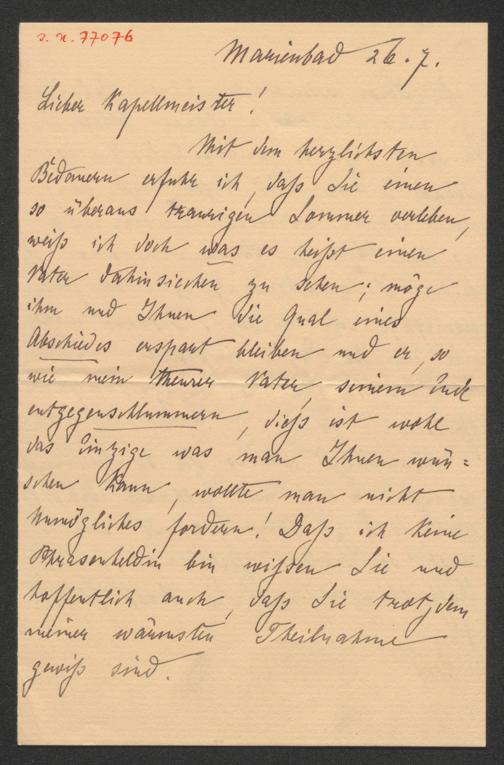 I. N. 77076
Marienbad 26. 7.
Lieber Kapellmeister!
Mit dem herzlichsten
Bedauern erfuhr ich, daß Sie einen
so überaus traurigen Sommer verleben,
weiß ich doch was es heißt einen
Vater dahinsiechen zu sehen; möge
ihm und Ihnen die Qual eines
Abschiedes erspart bleiben und er, so
wie mein theurer Vater, seinem Ende
entgegenschlummern, dieß ist wohl
das Einzige was man Ihnen wün=
schen kann, wollte man nicht
Unmögliches fordern! Daß ich keine
Phrasenheldin bin wißen Sie und
hoffentlich auch, daß Sie trotzdem
meiner wärmsten Theilnahme
gewiß sind.